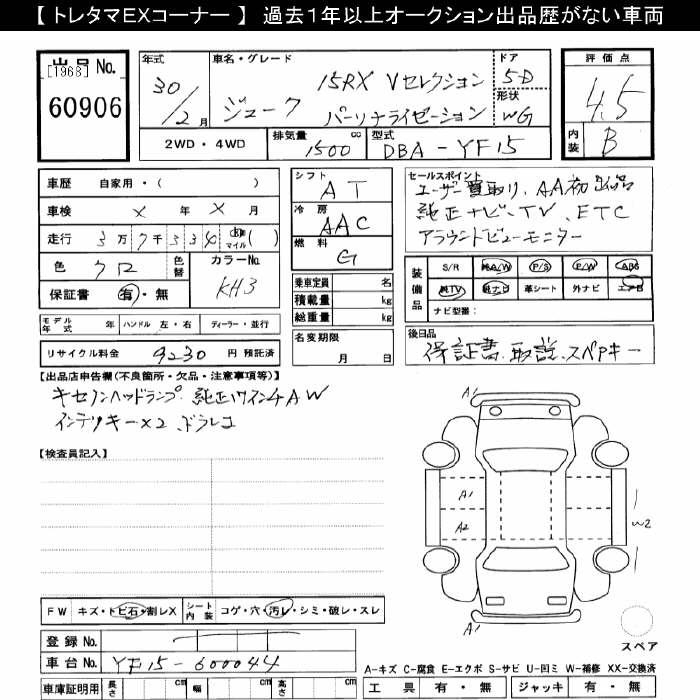 【 トレタマEXコーナー 】 過去1年以上オークション出品歴がない車両
出品No.
[1968]
60906
年式
30/2月
車名・グレード
ジューク
15RX Vセレクション
パーソナライゼーション
ドア
5-D
形状
WG
評価点
4.5
内装
B
2WD・4WD
排気量
1500 cc
型式
DBA-YF15
車歴 自家用・( )
車検 × 年 × 月
走行 3万7千334 km マイル ( )
色 クロ 色替
カラーNo.
KH3
保証書 有・無
シフト
AT
冷房
AAC
燃料
G
乗車定員 名
積載量 kg
総重量 kg
セールスポイント
ユーザー買取り、AA初出品
純正ナビ、TV、ETC
アラウンドビューモニター
装備品
S/R 純A/W P/S P/W ABS
純TV 純ナビ 革シート 外ナビ エアB
ナビ型番:
モデル年式 年 ハンドル 左・右 ディーラー・並行
リサイクル料金 9230 円 預託済
名変期限
月 日
後日品
保証書、取説、スペアキー
【出品店申告欄(不良箇所・欠品・注意事項等)】
キセノンヘッドランプ、純正17インチAW
インテリキー×2、ドラレコ
【検査員記入】
A1
A1
A2
W2
A1
スペア
FW キズ・トビ石・割レX
シート内装 コゲ・穴・汚レ・シミ・破レ・スレ
登録No.
車台No. YF15-600044
車庫証明用 長さ cm 幅 cm 高さ cm
A-キズ C-腐食 E-エクボ S-サビ U-凹ミ W-補修 XX-交換済
工具 有・無 ジャッキ 有・無